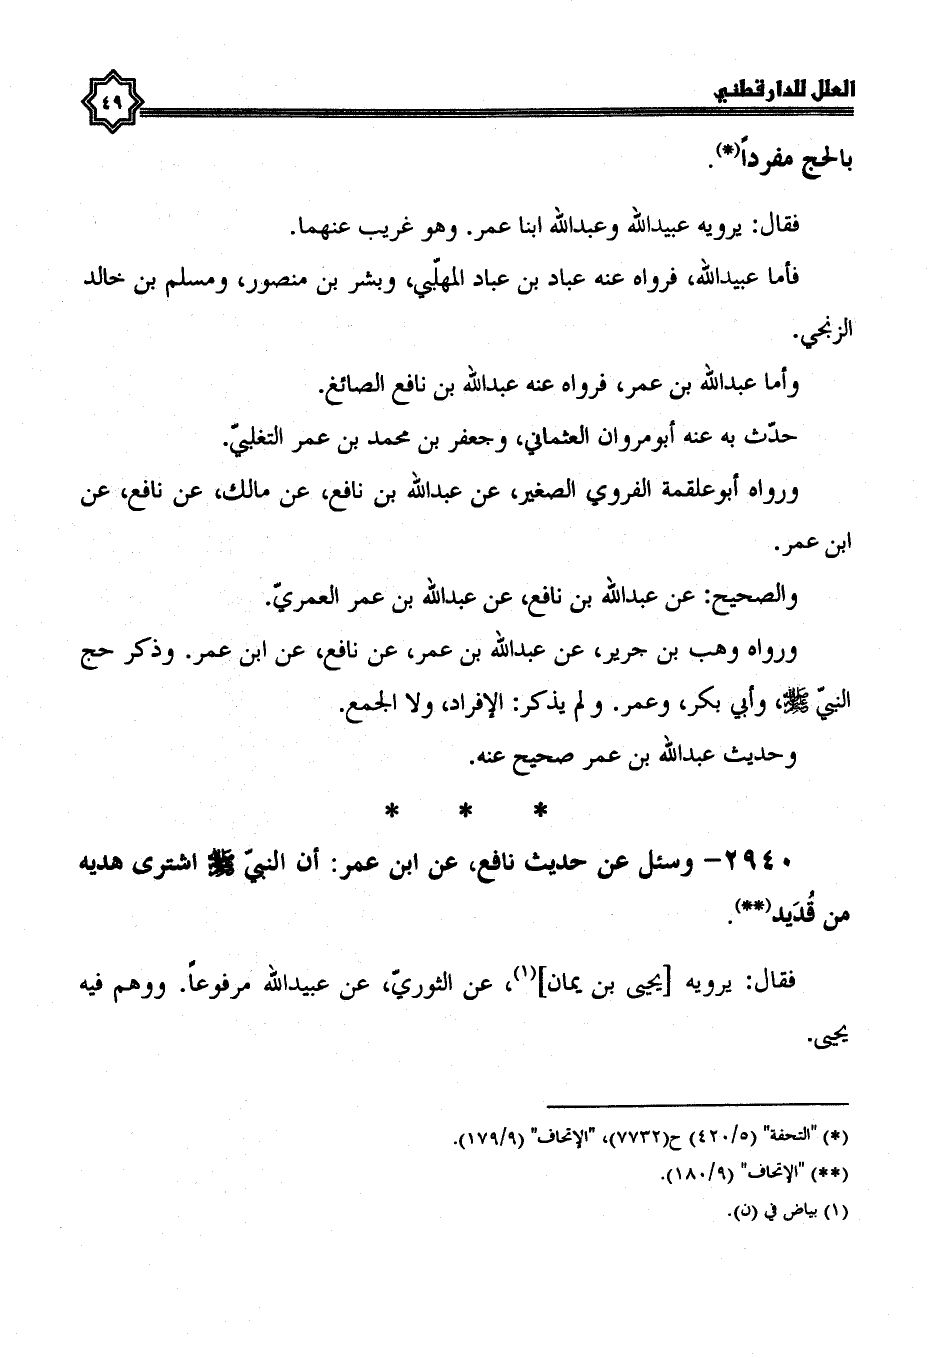 العلل للدارقطني
٤٩
بالحج مفرداً(*).
فقال: يرويه عبيدالله وعبدالله ابنا عمر. وهو غريب عنهما.
فأما عبيدالله، فرواه عنه عباد بن عباد المهلّبي، وبشر بن منصور، ومسلم بن خالد
الزنجي.
وأما عبدالله بن عمر، فرواه عنه عبدالله بن نافع الصائغ.
حدّث به عنه أبومروان العثماني، وجعفر بن محمد بن عمر التغلبيّ.
ورواه أبوعلقمة الفروي الصغير، عن عبدالله بن نافع، عن مالك، عن نافع، عن
ابن عمر.
والصحيح: عن عبدالله بن نافع، عن عبدالله بن عمر العمريّ.
ورواه وهب بن جرير، عن عبدالله بن عمر، عن نافع، عن ابن عمر. وذكر حج
النبيّ ﷺ، وأبي بكر، وعمر. ولم يذكر: الإفراد، ولا الجمع.
وحديث عبدالله بن عمر صحيح عنه.
* * *
٢٩٤٠- وسئل عن حديث نافع، عن ابن عمر: أن النبيّ ﷺ اشترى هديه
من قُدَيد(**).
فقال: يرويه [يحيى بن يمان](١)، عن الثوريّ، عن عبيدالله مرفوعاً. ووهم فيه
يحيى.
(*) "التحفة" (٤٢٠/٥) ح(٧٧٣٢)، "الإتحاف" (١٧٩/٩).
(**) "الإتحاف" (١٨٠/٩).
(١) بياض في (ن).